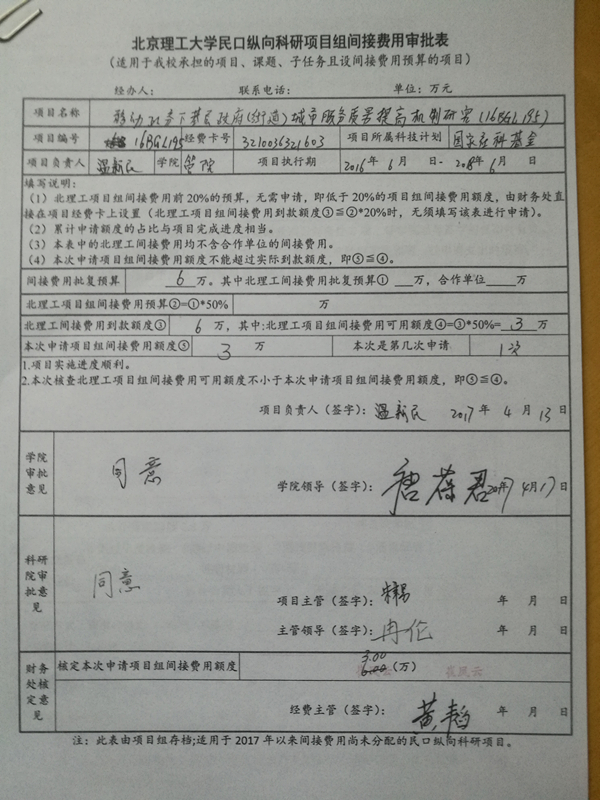 北京理工大学民口纵向科研项目组间接费用审批表
（适用于我校承担的项目、课题、子任务且设间接费用预算的项目）
经办人： 联系电话： 单位：万元
项目名称 移动社会下基层政府(街道)城市服务质量提高机制研究(16BGL195)
项目编号 16BGL195 经费卡号 3210036321603 项目所属科技计划 国家社科基金
项目负责人 温新民 学院 管院 项目执行期 2016年6月 日-2018年6月 日
填写说明：
（1）北理工项目组间接费用前20%的预算，无需申请，即低于20%的项目组间接费用额度，由财务处直
接在项目经费卡上设置（北理工项目组间接费用到款额度③≦②*20%时，无须填写该表进行申请）。
（2）累计申请额度的占比与项目完成进度相当。
（3）本表中的北理工间接费用均不含合作单位的间接费用。
（4）本次申请项目组间接费用额度不能超过实际到款额度，即⑤≦④。
间接费用批复预算 6 万。其中北理工间接费用批复预算① 万，合作单位 万
北理工项目组间接费用预算②=①*50% 万
北理工间接费用到款额度③ 6 万，其中:北理工项目组间接费用可用额度④=③*50%= 3 万
本次申请项目组间接费用额度⑤ 3 万 本次是第几次申请 1次
1.项目实施进度顺利。
2.本次核查北理工项目组间接费用可用额度不小于本次申请项目组间接费用额度，即⑤≦④。
项目负责人（签字）：温新民 2017年 4月 13日
学院审批意见 同意
学院领导（签字）：唐葆君 2017年4月17日
科研院审批意见 同意
项目主管（签字）： 年 月 日
主管领导（签字）：冉伦 年 月 日
财务处核定意见 核定本次申请项目组间接费用额度 3.00 6.00（万）
经费主管（签字）：黄韬 年 月 日
注：此表由项目组存档;适用于2017年以来间接费用尚未分配的民口纵向科研项目。